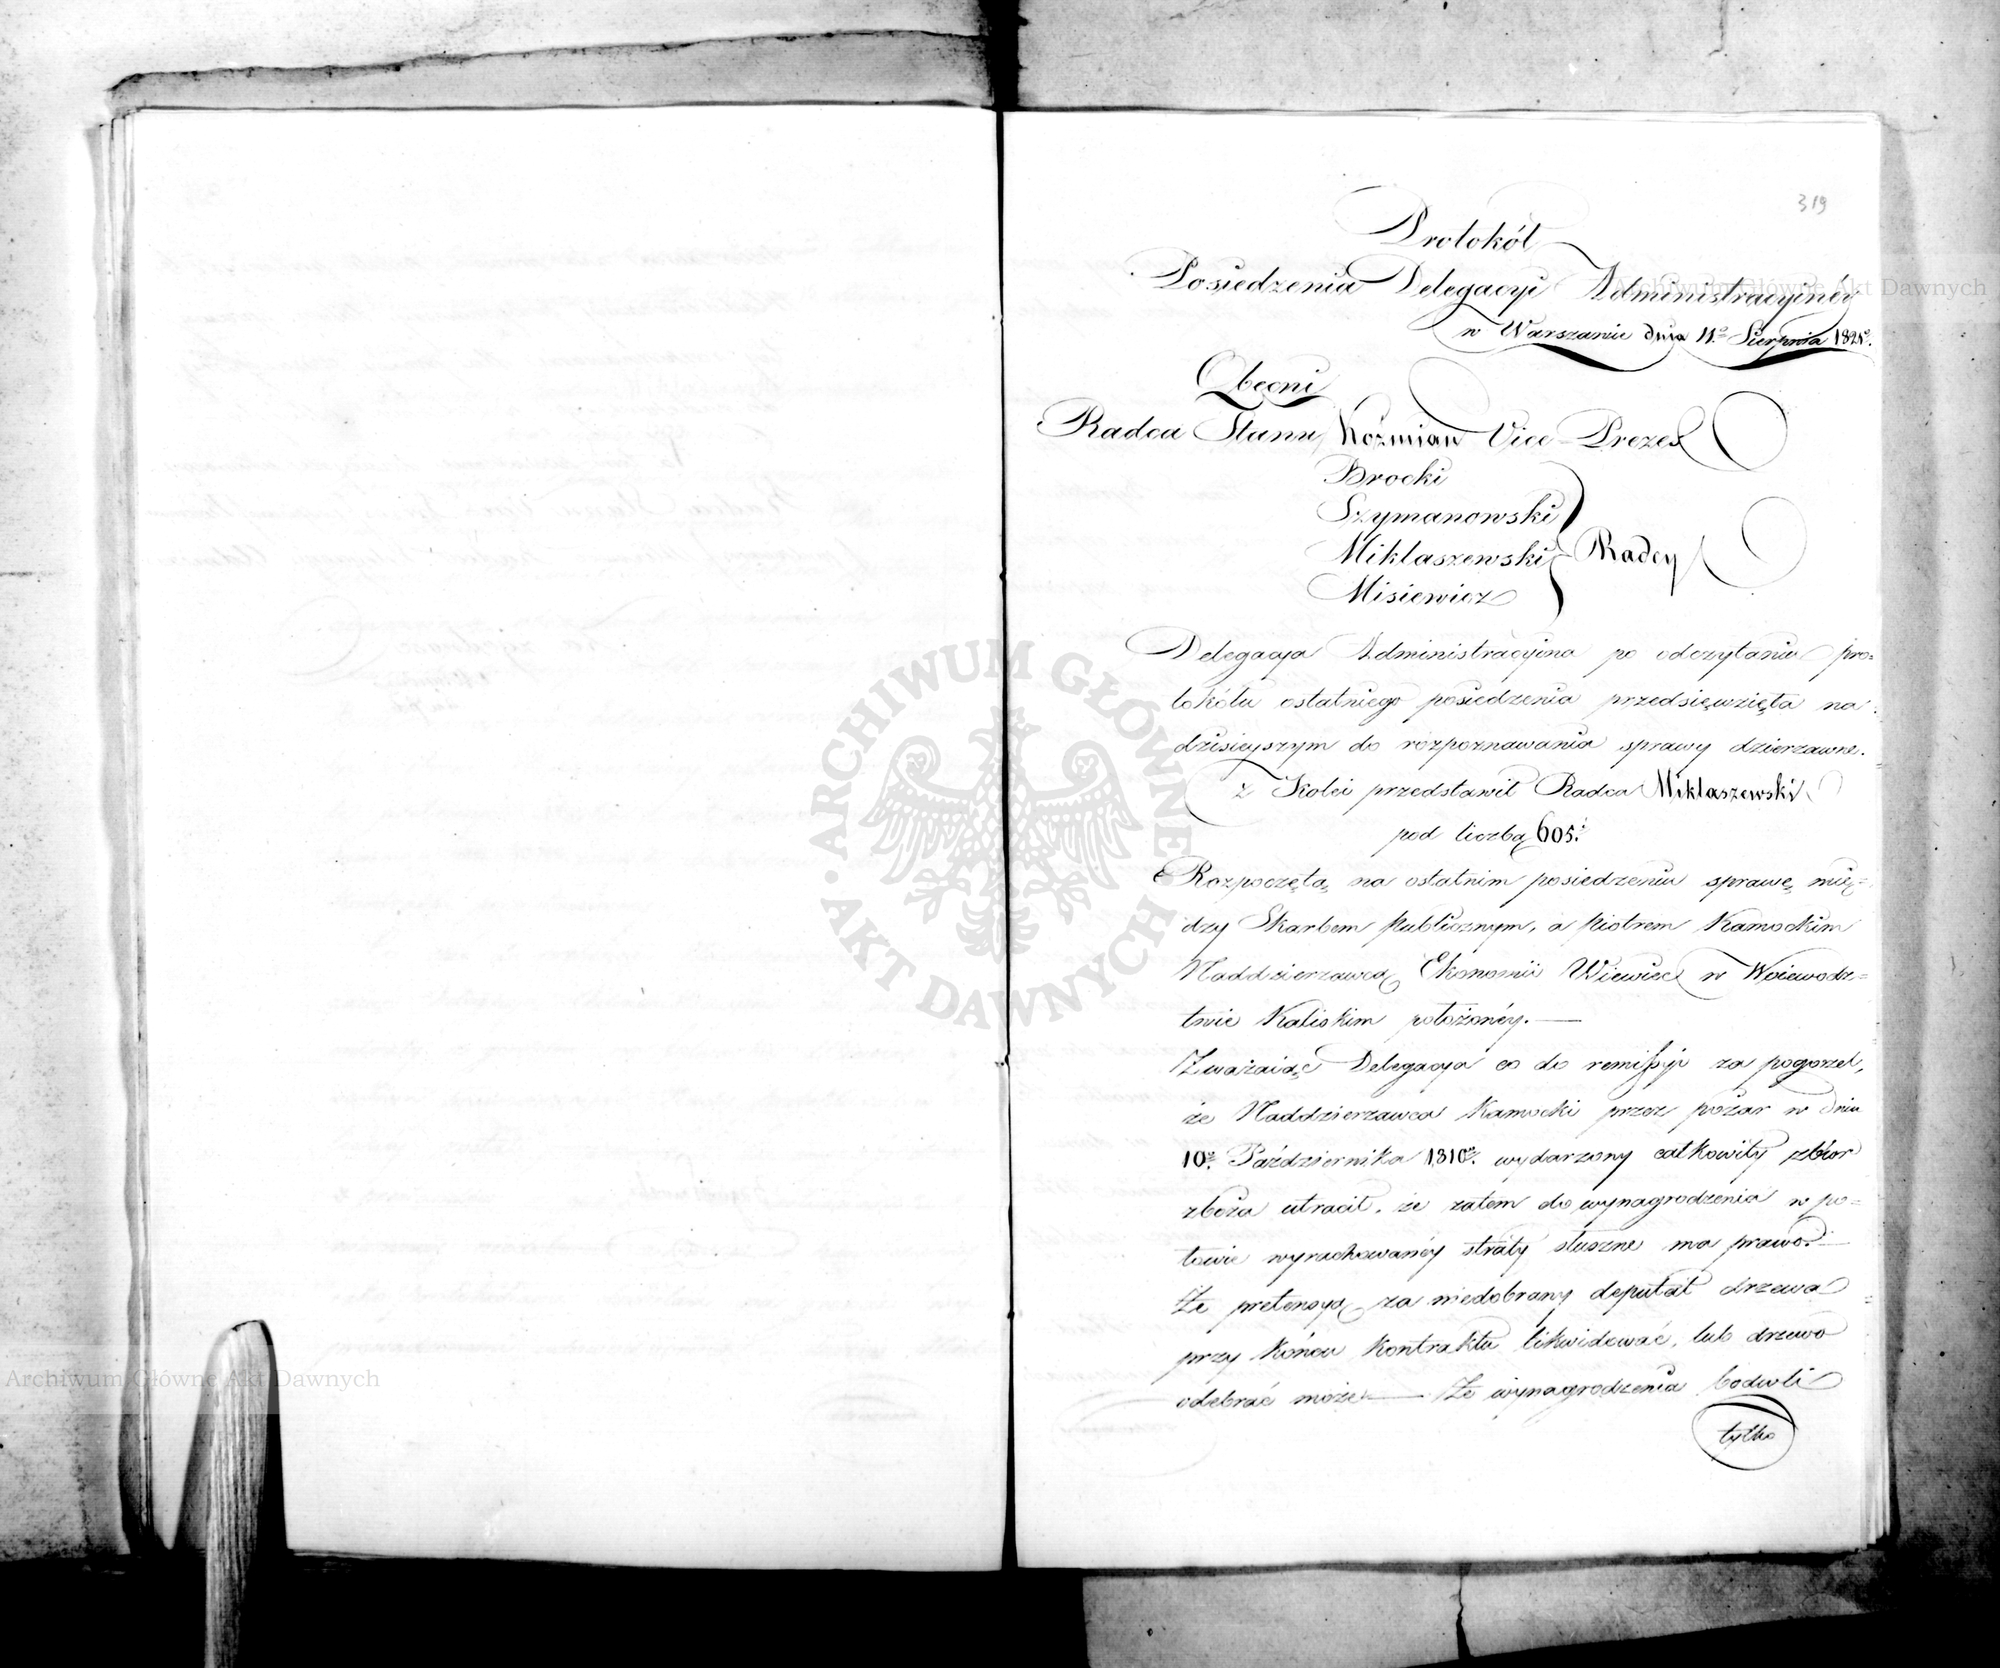 319
Protokół
Posiedzenia Delegacyi Administracyinéy
w Warszawie dnia 11º Sierpnia 1821º.
Obecni
Radca Stanu Koźmian Vice-Prezes
Brocki
Szymanowski
Miklaszewski Radcy
Misiewicz
Delegacya Administracyina po odczytaniu pro=
tokółu ostatniego posiedzenia przedsięwzięta na
dzisieyszym do rozpoznawania sprawy dzierzawne.
z Kolei przedstawił Radca Miklaszewski
pod liczbą 605.
Rozpoczętą na ostatnim posiedzeniu sprawę mię=
dzy Skarbem Publicznym, a Piotrem Kamockim
Naddzierzawcą Ekonomii Wiewiec w Woiewodz=
twie Kaliskim położonéy.—
Zwazaiąc Delegacya co do remissyi za pogorzel,
że Naddzierzawca Kamocki przez pożar w dniu
10º. Października 1810º. wydarzony całkowity zbior
zboża utracił, że zatem do wynagrodzenia w po=
łowie wyrachowanéy straty słuszne ma prawo.—
Że pretensyą za niedobrany deputat drzewa
przy końcu kontraktu likwidować, lub drzewo
odebrać może— Że wynagrodzenia bodowli
tylko
Archiwum Główne Akt Dawnych
Archiwum Główne Akt Dawnych
ARCHIWUM GŁÓWNE · AKT DAWNYCH ·